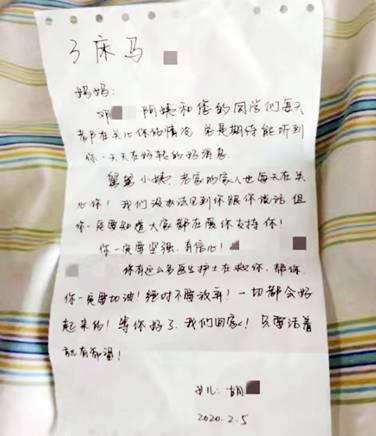 3床马
妈妈:
邓 阿姨和您的同学们每天
都在关心你的情况,总是期待能听到
你一天天在好转的好消息.
舅舅、小姨、老家的家人也每天在关
心你! 我们没办法见到你跟你说话,但
你一定要知道大家都在爱你支持你!
你一定要坚强、有信心!
你有这么多医生护士在救你、帮你.
你一定要加油! 绝对不要放弃! 一切都会好
起来的! 等你好了,我们回家! 只要活着
就有希望!
女儿: 胡
2020.2.5